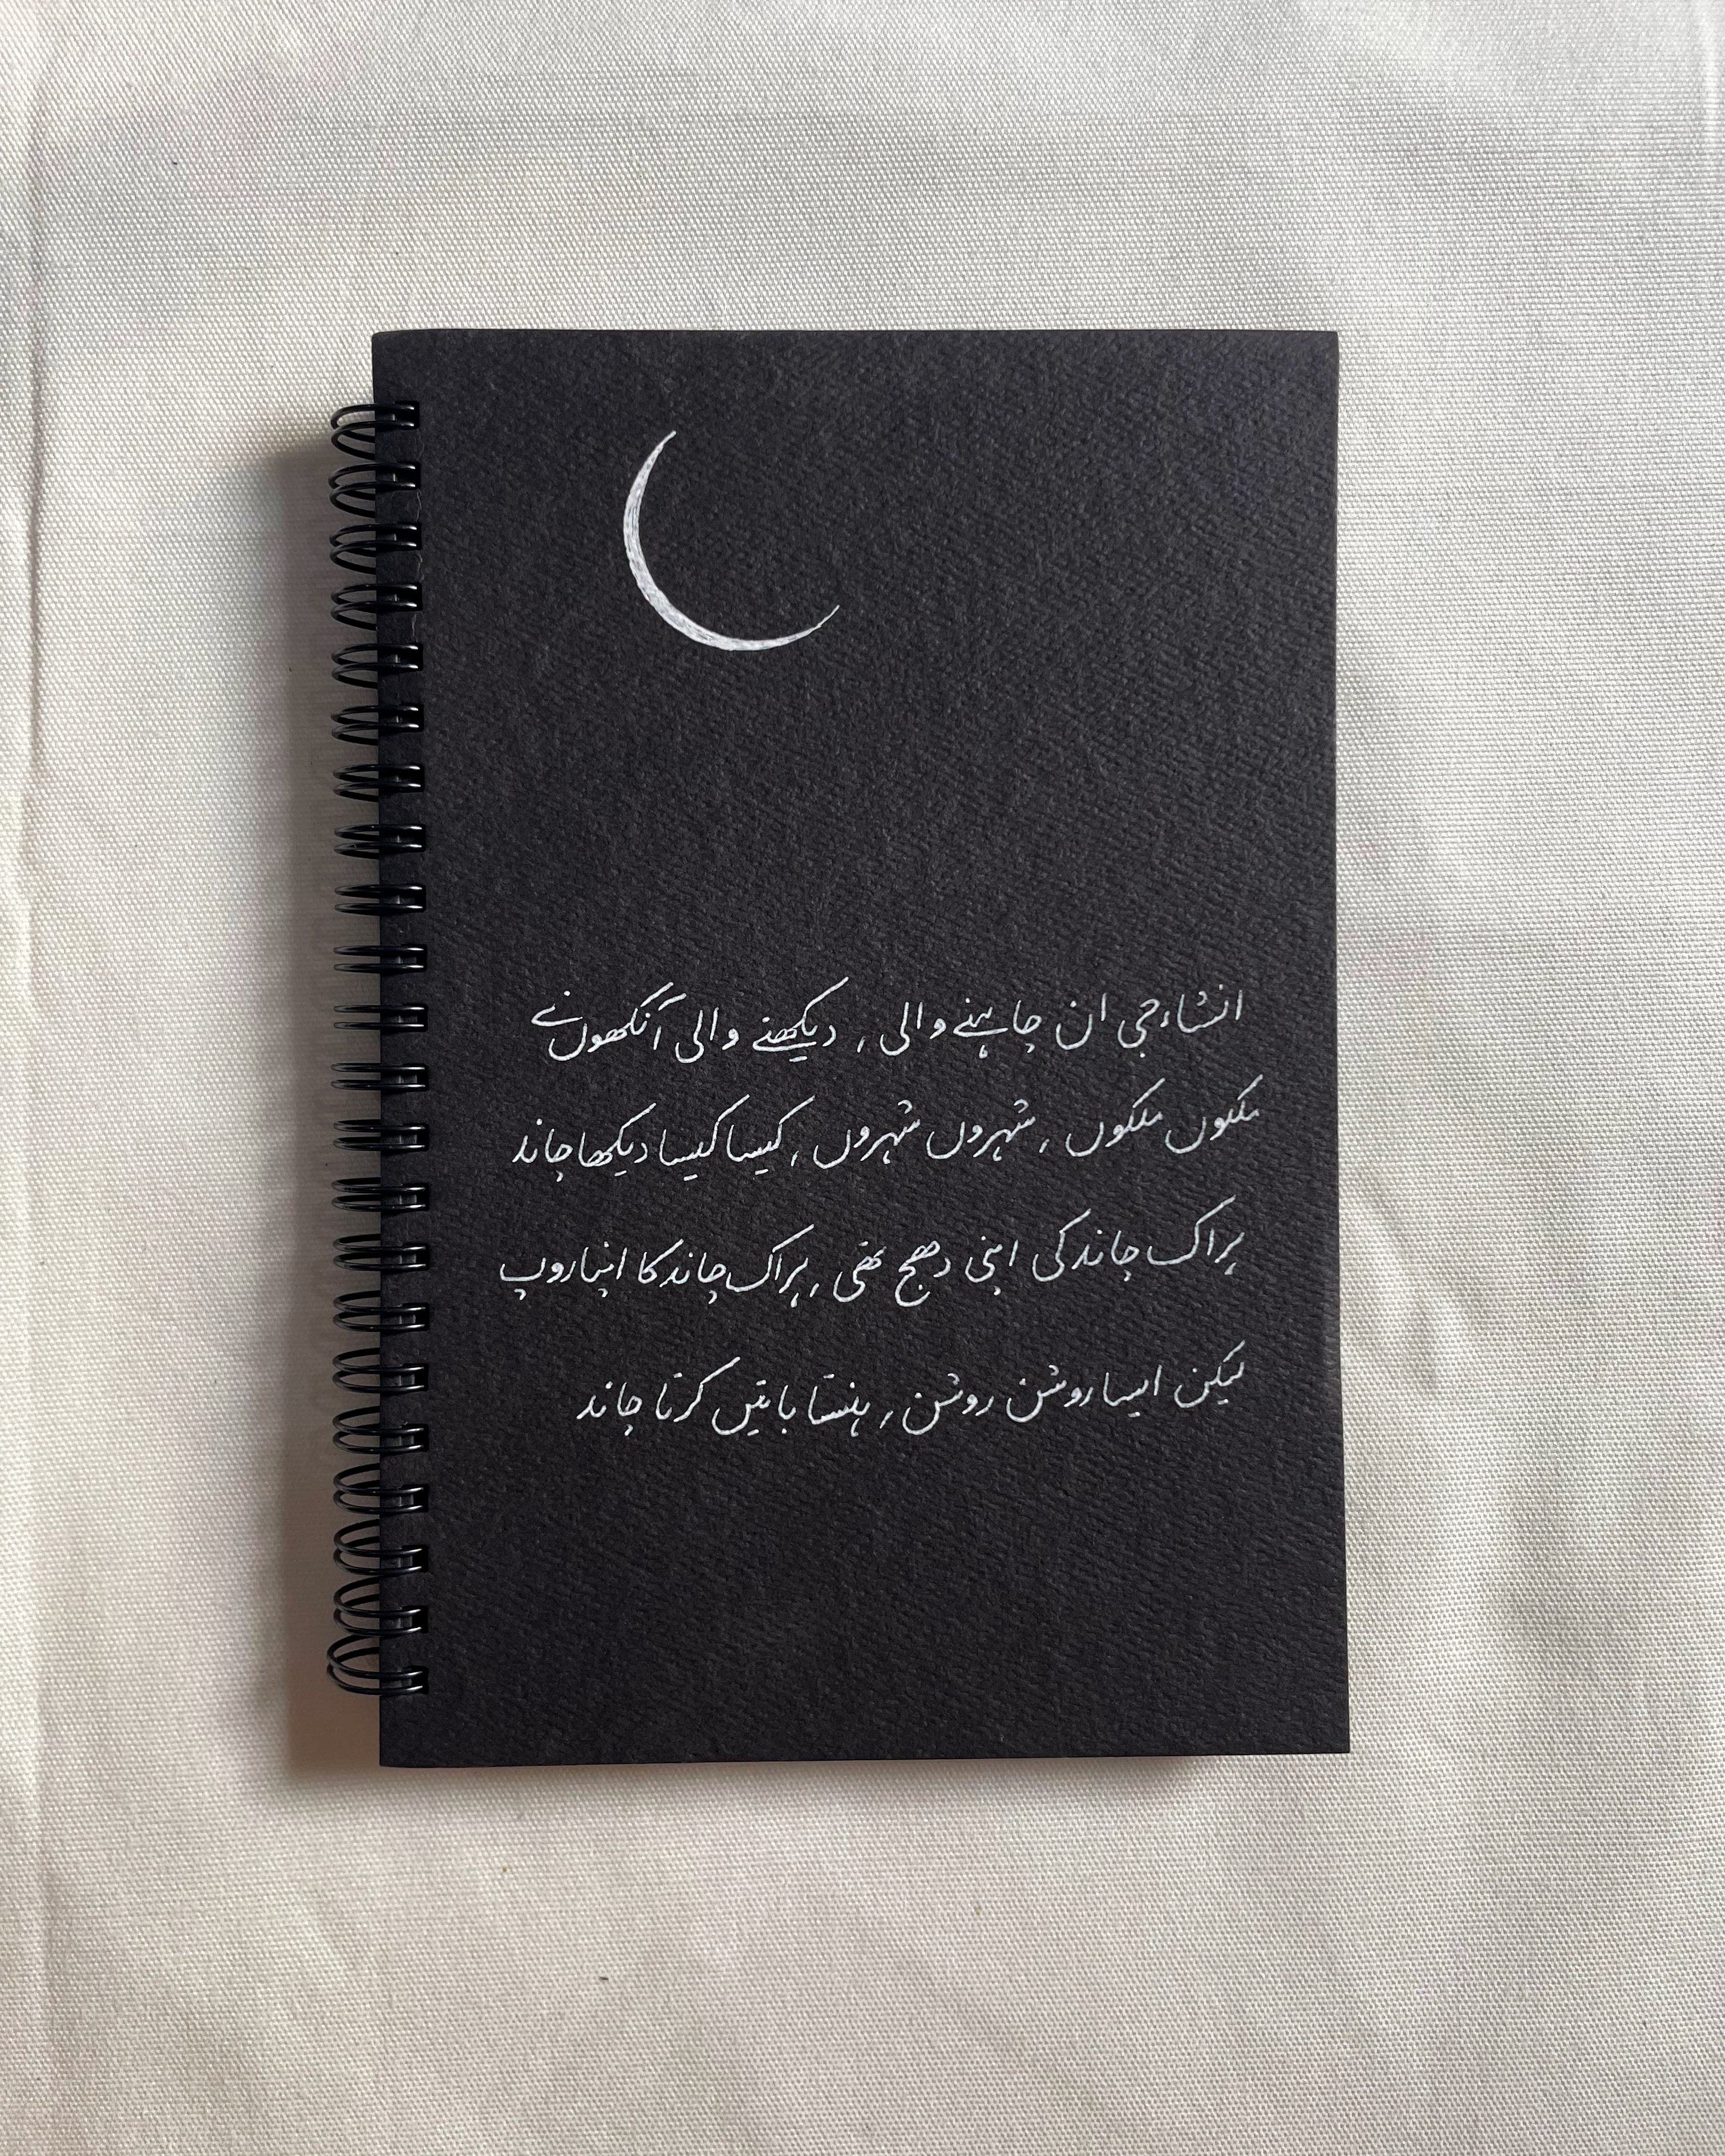 انشاء جی ان چاہنے والی ، دیکھنے والی آنکھوں نے
ملکوں ملکوں ، شہروں شہروں ، کیسا کیسا دیکھا چاند
ہر اک چاند کی اپنی دھج تھی ، ہر اک چاند کا اپنا روپ
لیکن ایسا روشن روشن ، ہنستا باتیں کرتا چاند